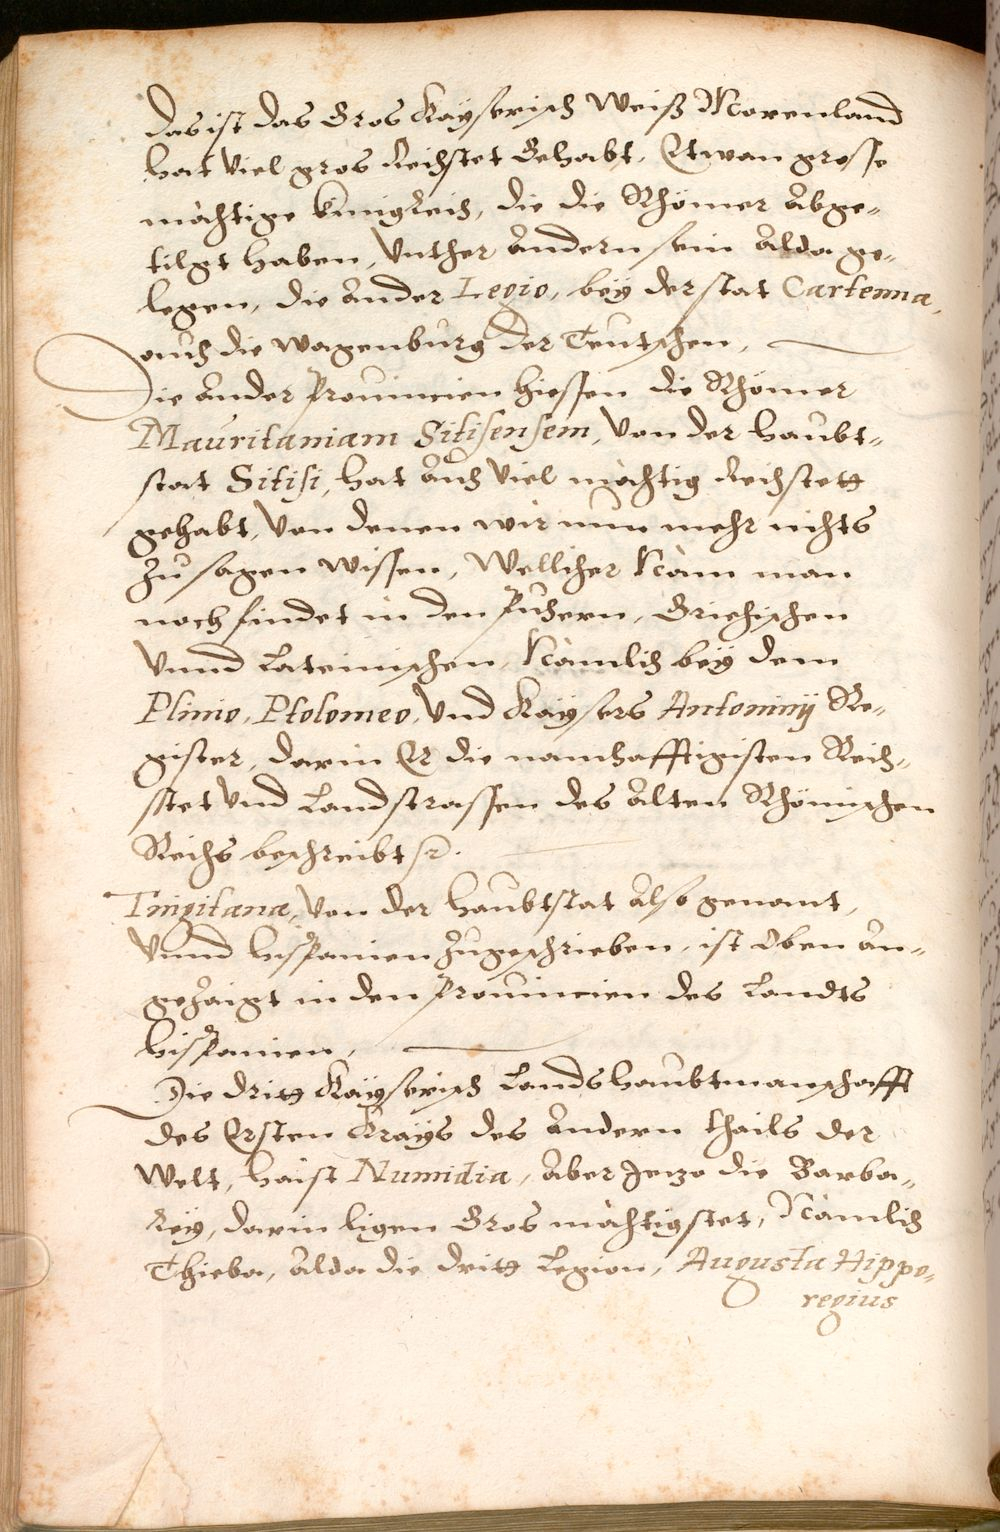 das ist das Gros Kayserisch Weiß Morenland
hat Viel gros Reichstet Gehabt, Etwan grosse
mächtige Künigkreich, die die Rhömer Abge-
tilgt haben, Vnther Andern sein Alda ge-
legen, die Ander Legio, bey der stat Cartenna,
auch die wagenburg der Teutschen,
Die Ander Prouincien hiessen die Rhömer
Mauritaniam Sitisensem, Von der haubt-
stat Sitisi, hat Auch Viel mächtig Reichstett
gehabt, Von denen wir nun mehr nichts
Zu sagen wissen, Wellicher Näm man
noch findet in den Püchern, Griechischen
Vnnd Lateinischen, Nämlich bey dem
Plinio, Ptolomeo, Vnd Kaysers Antoninij Re-
gister, darin Er die namhafftigisten Reich-
stet Vnd Landstrassen des Alten Rhömischen
Reichs beschreibt
Tingitana, Von der haubtstat Also genant,
Vnnd hispanien Zugeschrieben, ist Oben an-
gezaigt in den Prouincien des Landts
hispanien,
Die dritt Kayserisch Landshaubtmanschafft
des Ersten Krays des Andern thails der
Welt, haist Numidia, Aber Jezo die Barba-
rey, darin ligen Gros mächtig stet, Nämlich
Thieba, Alda die dritt Legion, Augusta Hippo-
regius